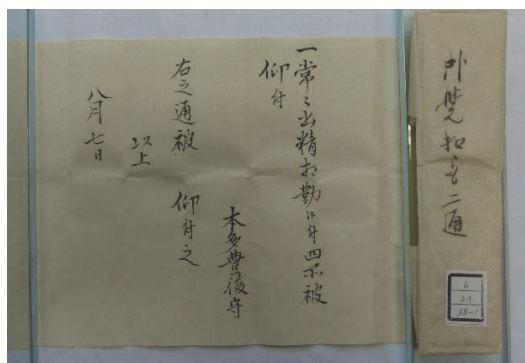 二通
6
21
38-1
一常々出精相勤候付四品被
仰付
本多豊後守
右之通被 仰付之
以上
八月七日